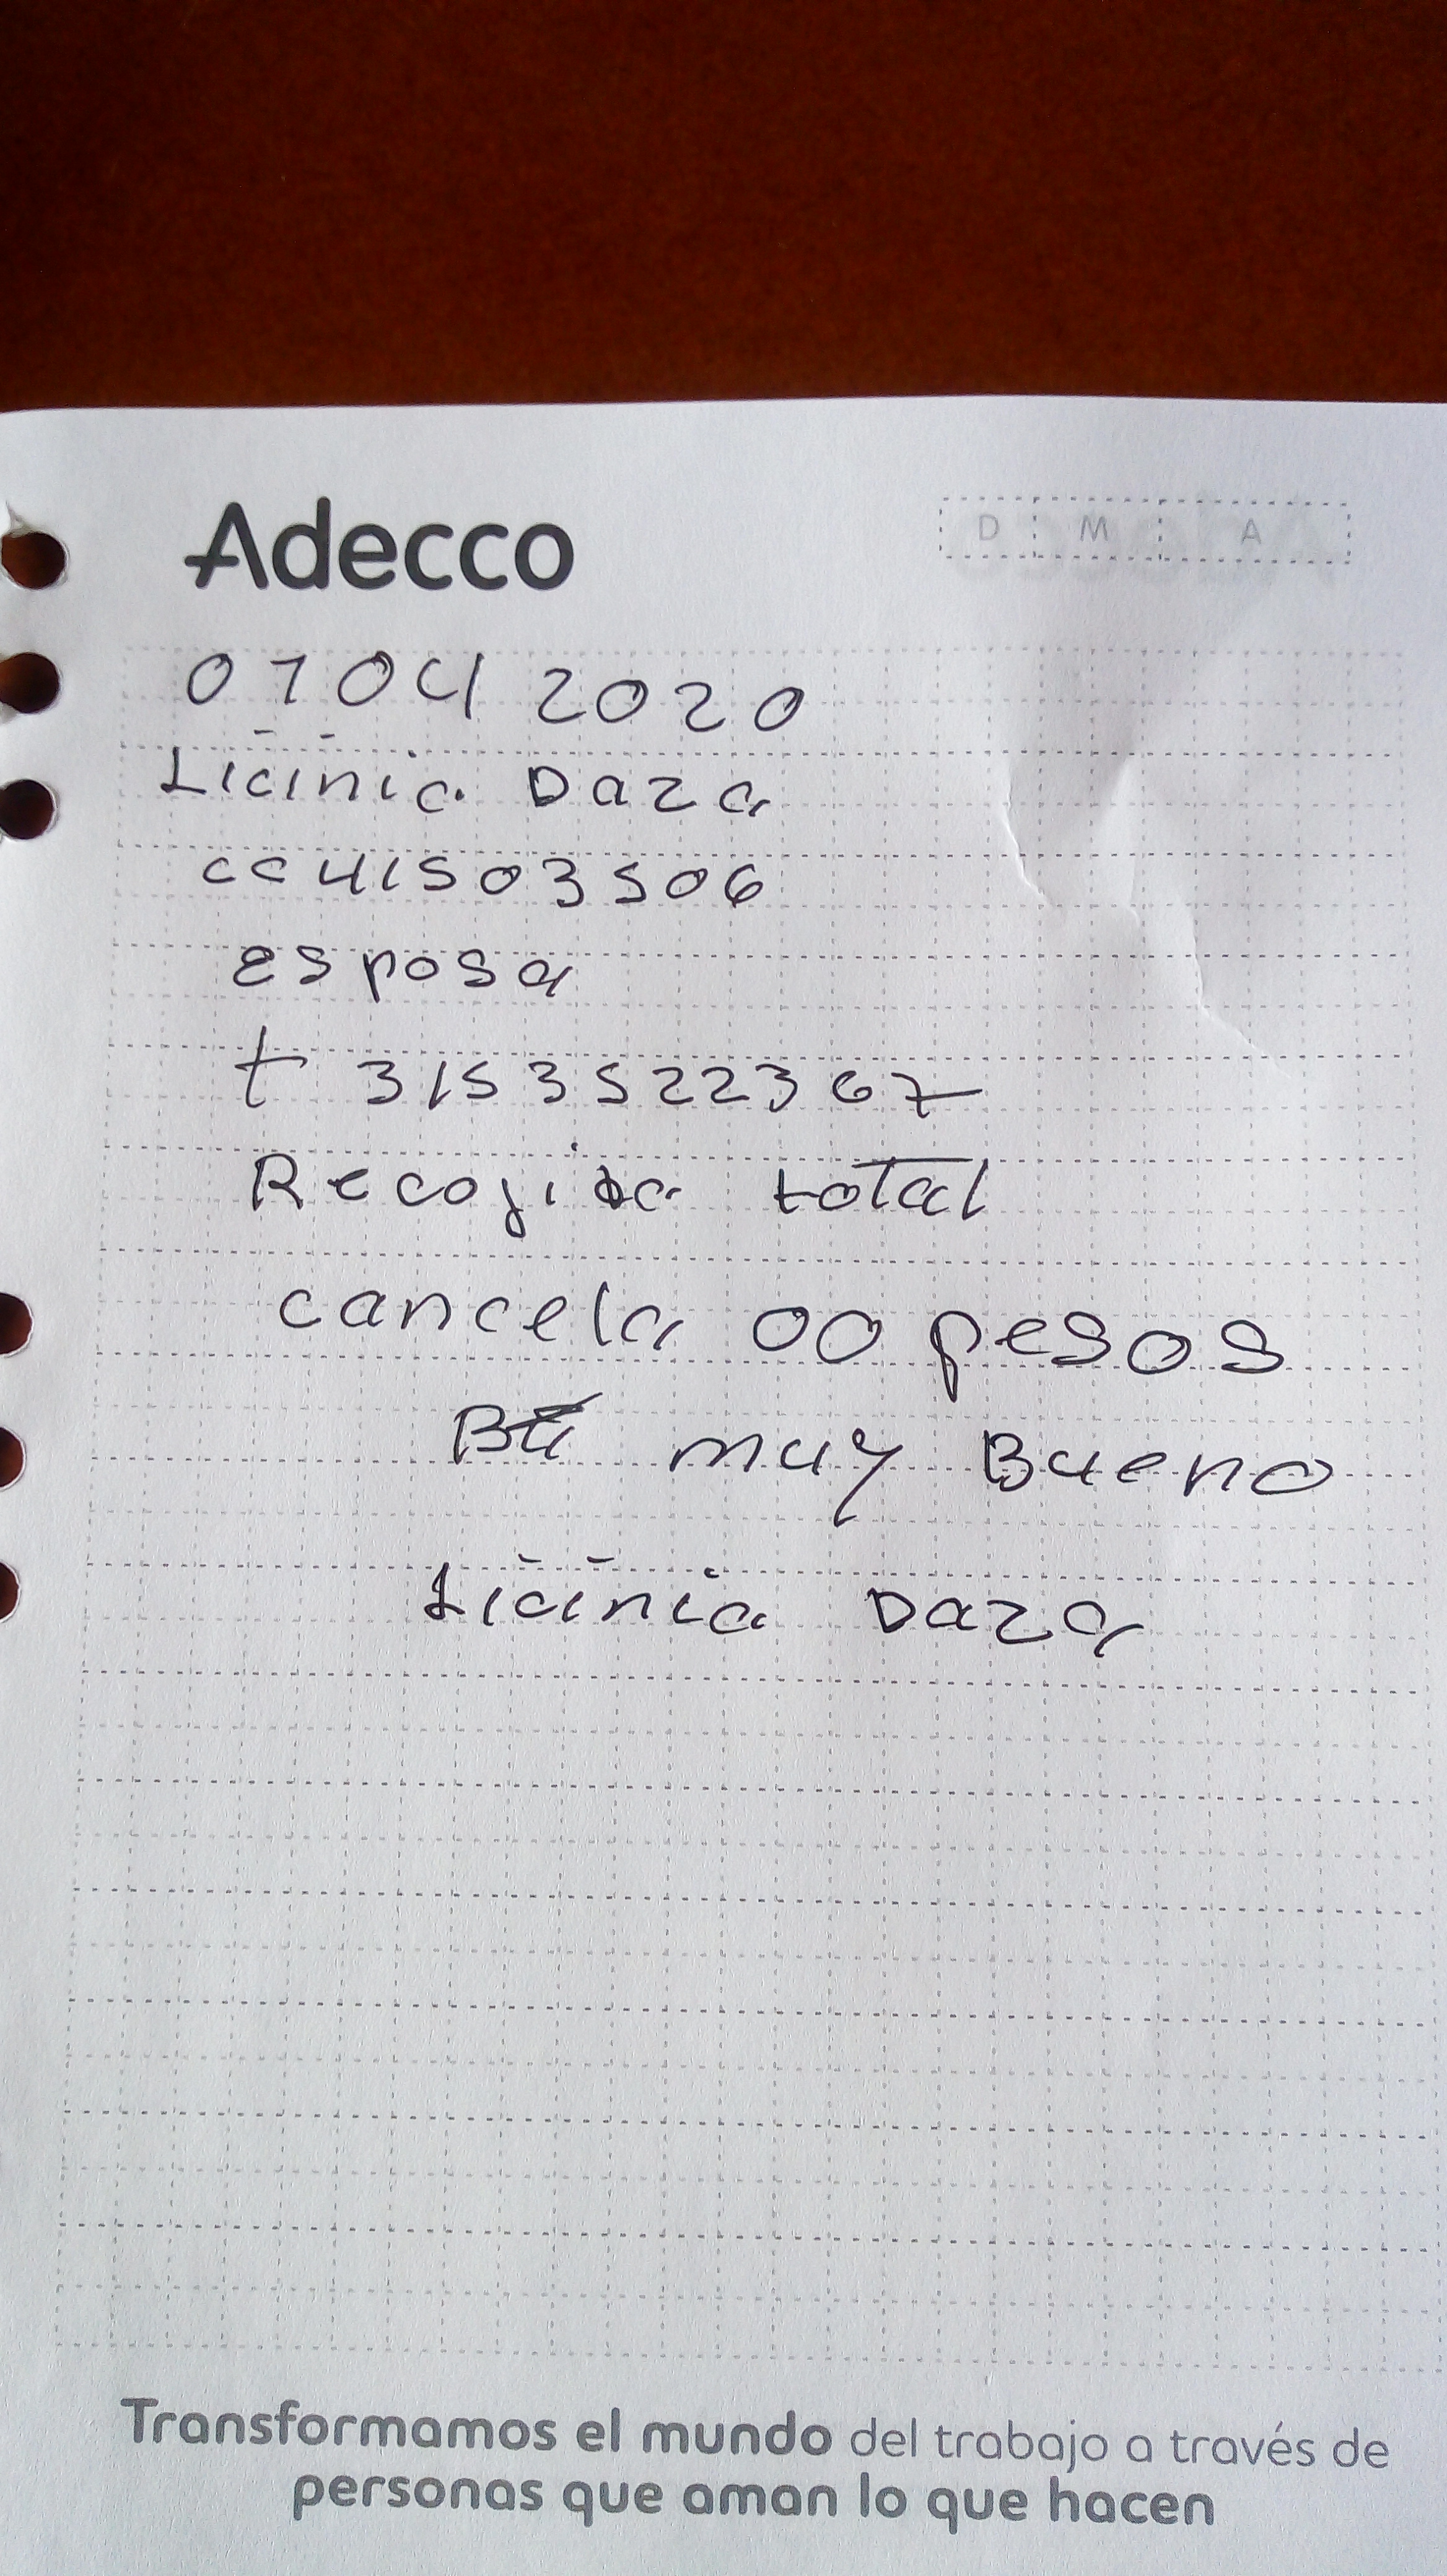 Adecco
D M A
01 04 2020
Licinia Daza
cc 41503506
esposa
t 3153522367
Recojida total
cancela 00 pesos
muy Bueno
Licinia Daza
Transformamos el mundo del trabajo a través de
personas que aman lo que hacen